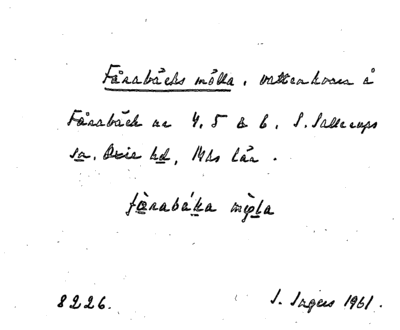 Fårabäcks mölla, vattenkvarn å
Fårabäck nr 4, 5 & 6, S. Sallerups
sn. Oxie hd, Mhs län.
fårabäka mộla
8226. I. Ingers 1961.